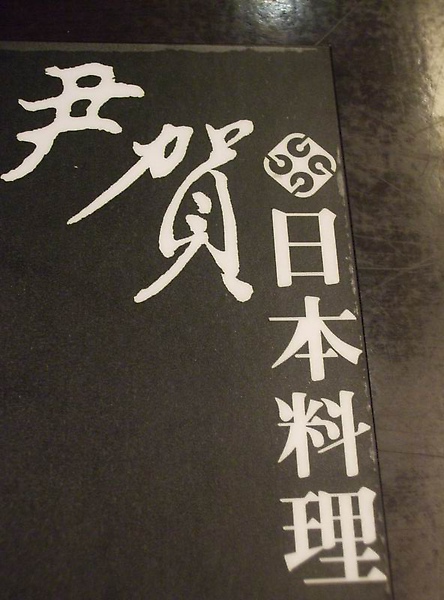 尹賀
日本料理